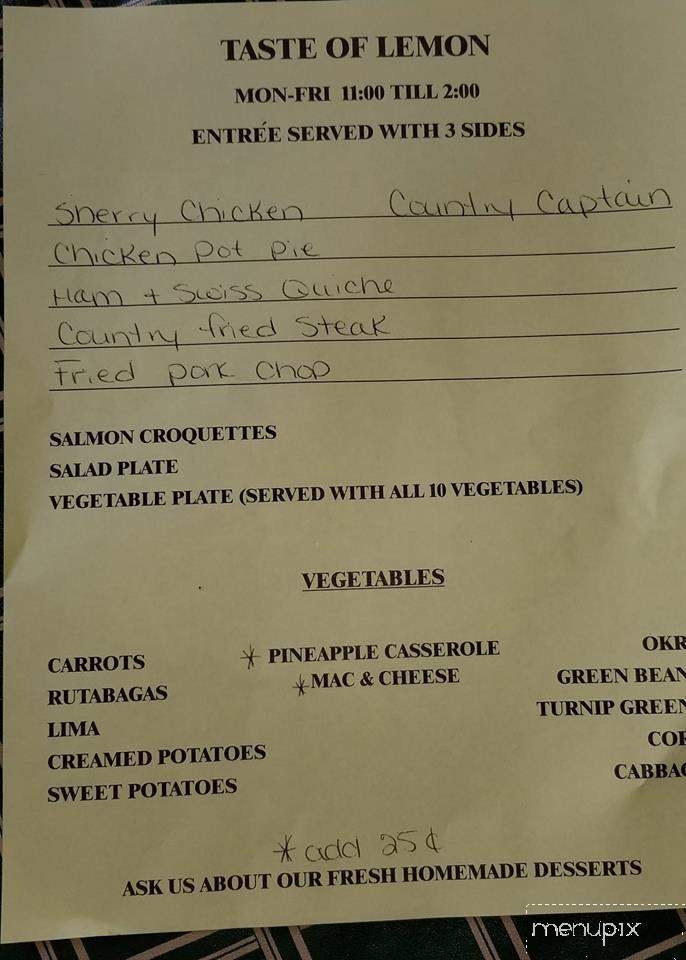 TASTE OF LEMON
MON-FRI 11:00 TILL 2:00
ENTRÉE SERVED WITH 3 SIDES
Sherry Chicken Country Captain
Chicken Pot Pie
Ham + Swiss Quiche
Country fried Steak
Fried pork Chop
SALMON CROQUETTES
SALAD PLATE
VEGETABLE PLATE (SERVED WITH ALL 10 VEGETABLES)
VEGETABLES
CARROTS * PINEAPPLE CASSEROLE OKR
RUTABAGAS * MAC & CHEESE GREEN BEAN
LIMA TURNIP GREEN
CREAMED POTATOES COR
SWEET POTATOES CABBAG
* add 25¢
ASK US ABOUT OUR FRESH HOMEMADE DESSERTS
menupix